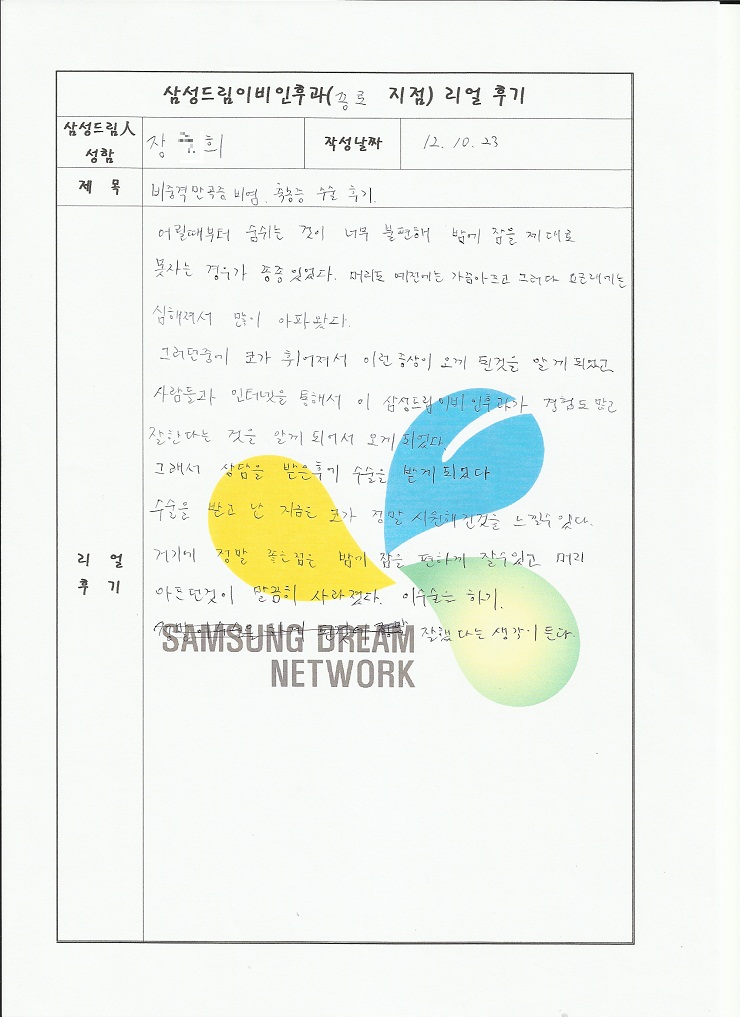 삼성드림이비인후과(종로 지점) 리얼 후기
삼성드림人 성함
장 희
작성날짜
12. 10. 23
제 목
비중격만곡증 비염. 축농증 수술 후기.
리 얼 후 기
어릴때부터 숨쉬는 것이 너무 불편해 밤에 잠을 제대로
못자는 경우가 종종 있었다. 머리도 예전에는 가끔아프고 그러다 요근래에는
심해져서 많이 아파왔다.
그러던중에 코가 휘어져서 이런증상이 오게 된것을 알게되었고
사람들과 인터넷을 통해서 이 삼성드림이비인후과가 경험도 많고
잘한다는 것을 알게 되어서 오게 되었다.
그래서 상담을 받은후기 수술을 받게되었다
수술을 받고 난 지금은 코가 정말 시원해진것을 느낄수있다.
거기에 정말 좋은점은 밤에 잠을 편하게 잘수있고 머리
아프던것이 말끔히 사라졌다. 이수술은 하기.
잘했다는 생각이 든다.
SAMSUNG DREAM
NETWORK